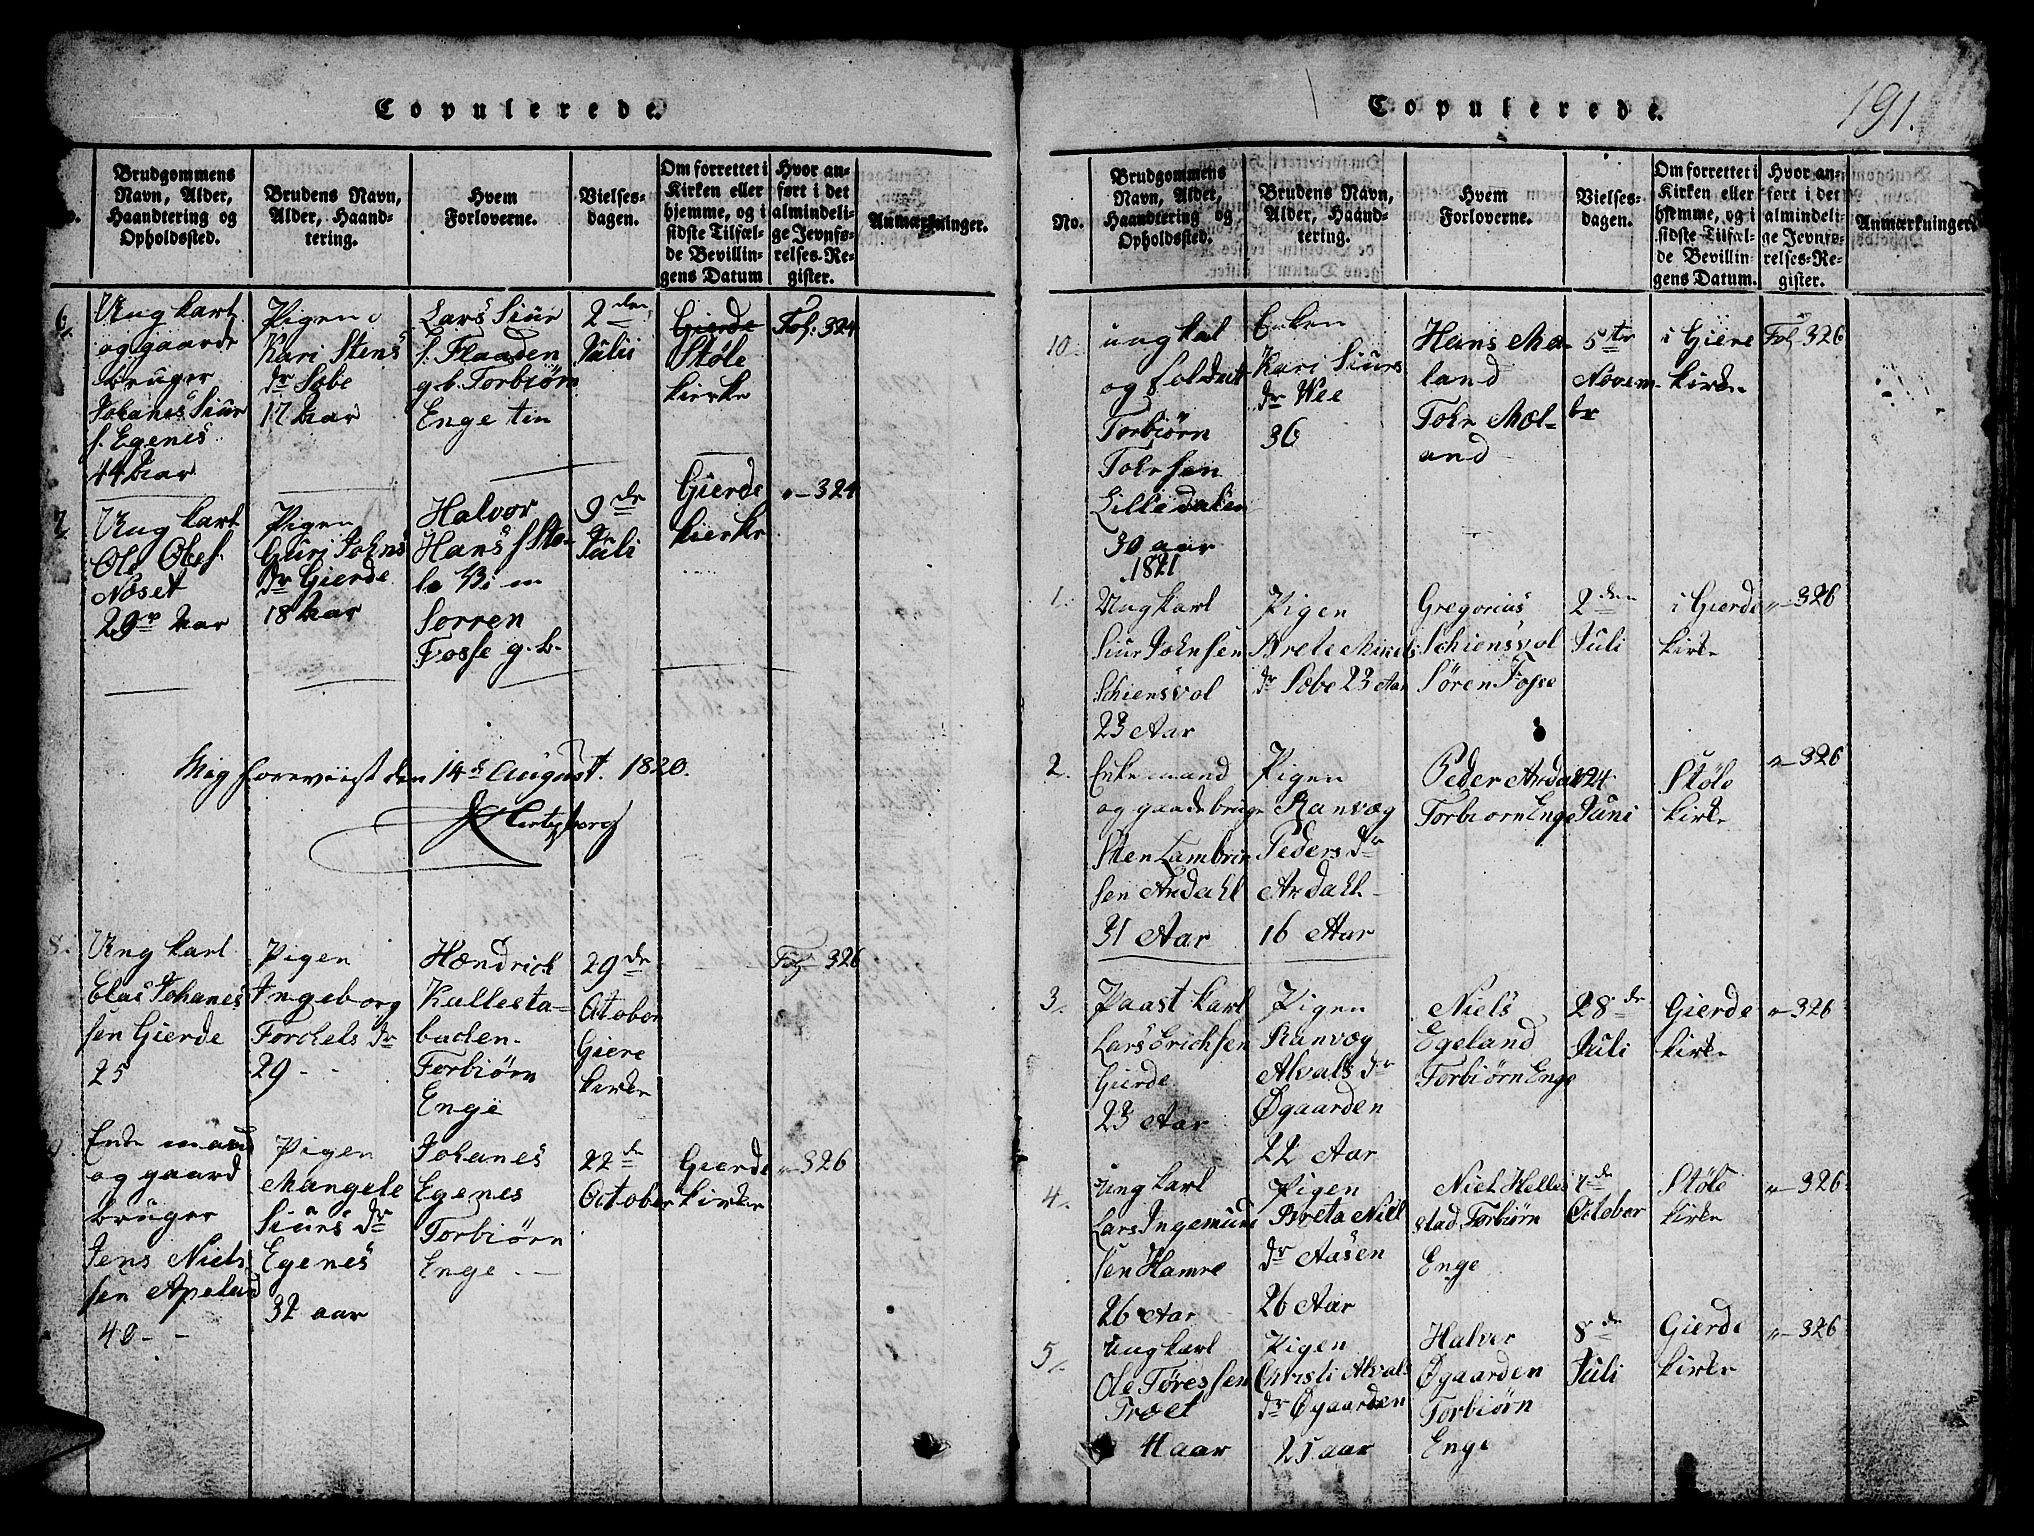 Copulerede.
No.
Brudgommens Navn, Alder, Haandtering og Opholdssted.
Brudens Navn, Alder, Haandtering.
Hvem Forloverne.
Vielsesdagen.
Om forrettet i Kirken eller hjemme, og i sidste Tilfælde Bevillingens Datum
Hvor anført i det almindelige Jevnførelses-Register.
Anmærkninger.
6.
Ung karl
og gaard
bruger
Johanes Siur
s. Egenes
44 Aar
Pigen
Kari Stens
dr Søbe
17 Aar
Lars Siur
s. Flaaden
g.b. Torbiørn
Enge tin
2 den
Julii
Gierde
Støle
kierke
Fol. 324
7
Ung karl
Ole Olses.
Noset
29 Aar
Pigen
Guri Johns
dr Gierde
18 Aar
Halvor
Hans s Stø-
le Bi m
Sorren
Fosse g.b.
9 de
Juli
Gierde
kierke
" 324
Mig foreviist den 14de August. 1820.
Hertzberg
8.
Ung karl
Elas Johanes
sen Gierde
25
Pigen
Ingeborg
Torckels dr
29 - -
Hændrick
Kallesta-
baden.
Torbiørn
Enge
29 de
October
Giere
kirke
Fol 326
9.
Enke mand
og gaard
bruger
Jens Niels
sen Apeland
40 - -
Pigen
Mangele
Siurs dr
Egenes
32 aar
Johanes
Egenes
Torbiørn
Enge - -
22 de
October
Gierde
kirke
" 326
191.
Copulerede.
No.
Brudgommens Navn, Alder, Haandtering og Opholdssted.
Brudens Navn, Alder, Haandtering.
Hvem Forloverne.
Vielsesdagen.
Om forrettet i Kirken eller hjemme, og i sidste Tilfælde Bevillingens Datum.
Hvor anført i det almindelige Jevnførelses-Register.
Anmærkninger.
10.
ung kal
og soldat
Torbiørn
Tohrsen
Lilledalen
30 aar
Enken
Kari Siurs
dr Wee
36
Hans Mæ-
land
Tohr Mæl-
and
5 te
Novem
br
i Giere
kirke
Fol 326
1821
1.
Ung karl
Siur Johnsen
Schiensvol
23 Aar
Pigen
Brete
dr Søbe 23 Aar
Gregorius
Schiensvol
Søren Fosse
2 den
Juli
i Gierde
kirke
" 326
2.
Enke mand
og gaadebruge
Sten Lambrin
sen Ardahl
31 Aar
Pigen
Ranvæg
Peders dr
Ardahl-
16 Aar
Peder Ardal
Torbiorn Enge
24
Juni
Støle
kirke
" 326
3.
Paast karl
Lars Erichsen
Gierde
23 Aar
Pigen
Ranvæg
Alvals dr
Øgaarden
22 Aar
Niels
Egeland
Torbiørn Enge
28 de
Juli
Gierde
kirke
" 326
4.
Ung karl
Lars Ingemun
sen Hamre
26 Aar
Pigen
Breta Niel
dr Aasen
26 Aar
Niel Helles
stad, Torbiørn
Enge
7 de
October
Støle
kirke
" 326
5.
Ung karl
Ole Tøressen
Træet
41 aar
Pigen
Christi Alval-
dr Øgaarden
25 aar
Halver
Øgaarden
Torbiørn
Enge
8 de
Juli
Gierde
kirke
" 326